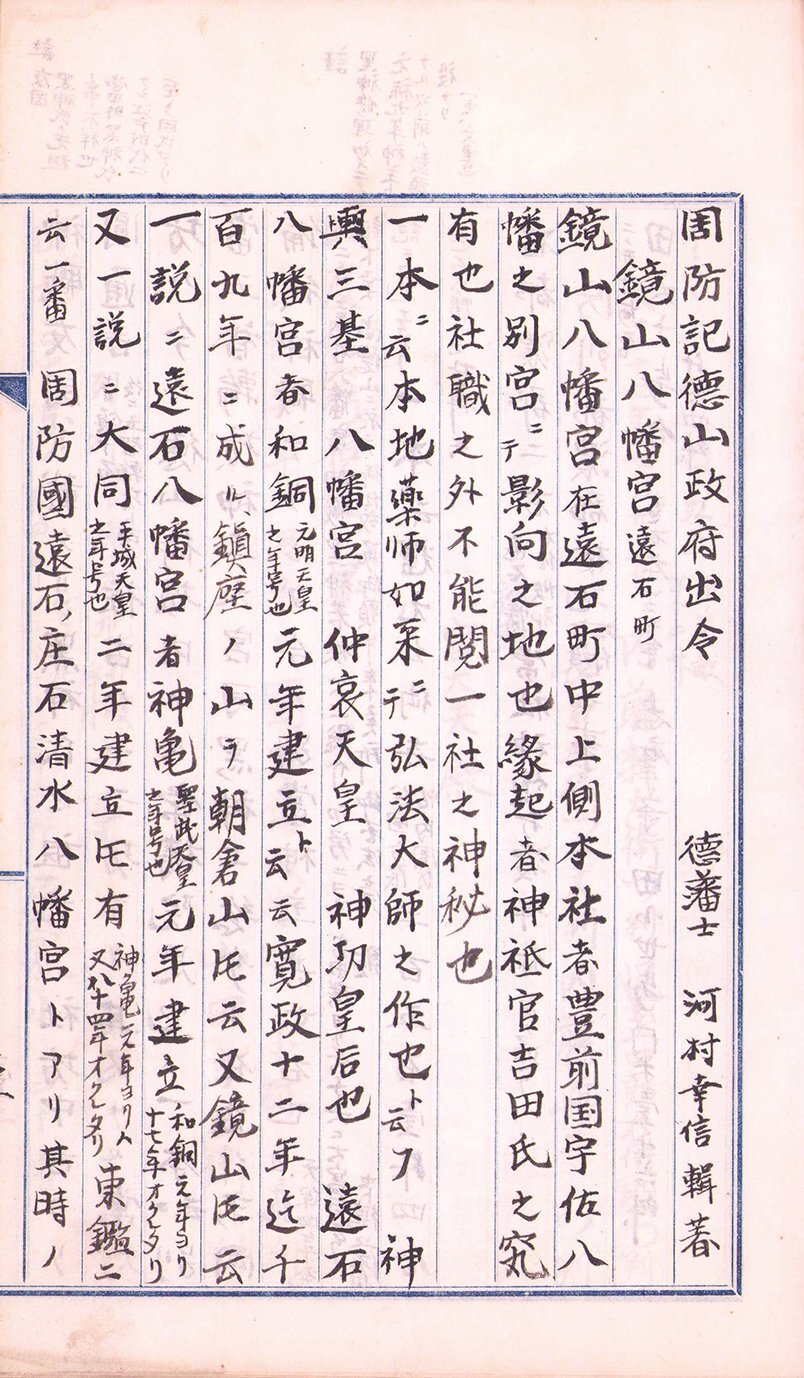 周防記徳山政府出令 徳藩士 河村幸信輯著
鏡山八幡宮 遠石町
鏡山八幡宮在遠石町中上側本社者豊前国宇佐八
幡之別宮ニテ影向之地也縁起者神祇官吉田氏之究
有也社職之外不能閲一社之神秘也
一本ニ云本地薬师如来ニテ弘法大師之作也ト云フ 神
輿三基 八幡宮 仲哀天皇 神功皇后也 遠石
八幡宮者和銅元明天皇之年号也元年建立ト云云寛政十二年迄千
百九年ニ成ル、鎮座ノ山ヲ朝倉山ㇳモ云又鏡山ㇳモ云
一説ニ遠石八幡宮者神亀聖武天皇之年号也元年建立和銅元年ヨリ十七年オクレタリ
又一説ニ大同平城天皇之年号也二年建立ㇳモ有神亀元年ヨリハ又八十四年オクレタリ東鑑ニ
云一番 周防國遠石、庄石清水八幡宮トアリ其時ノ